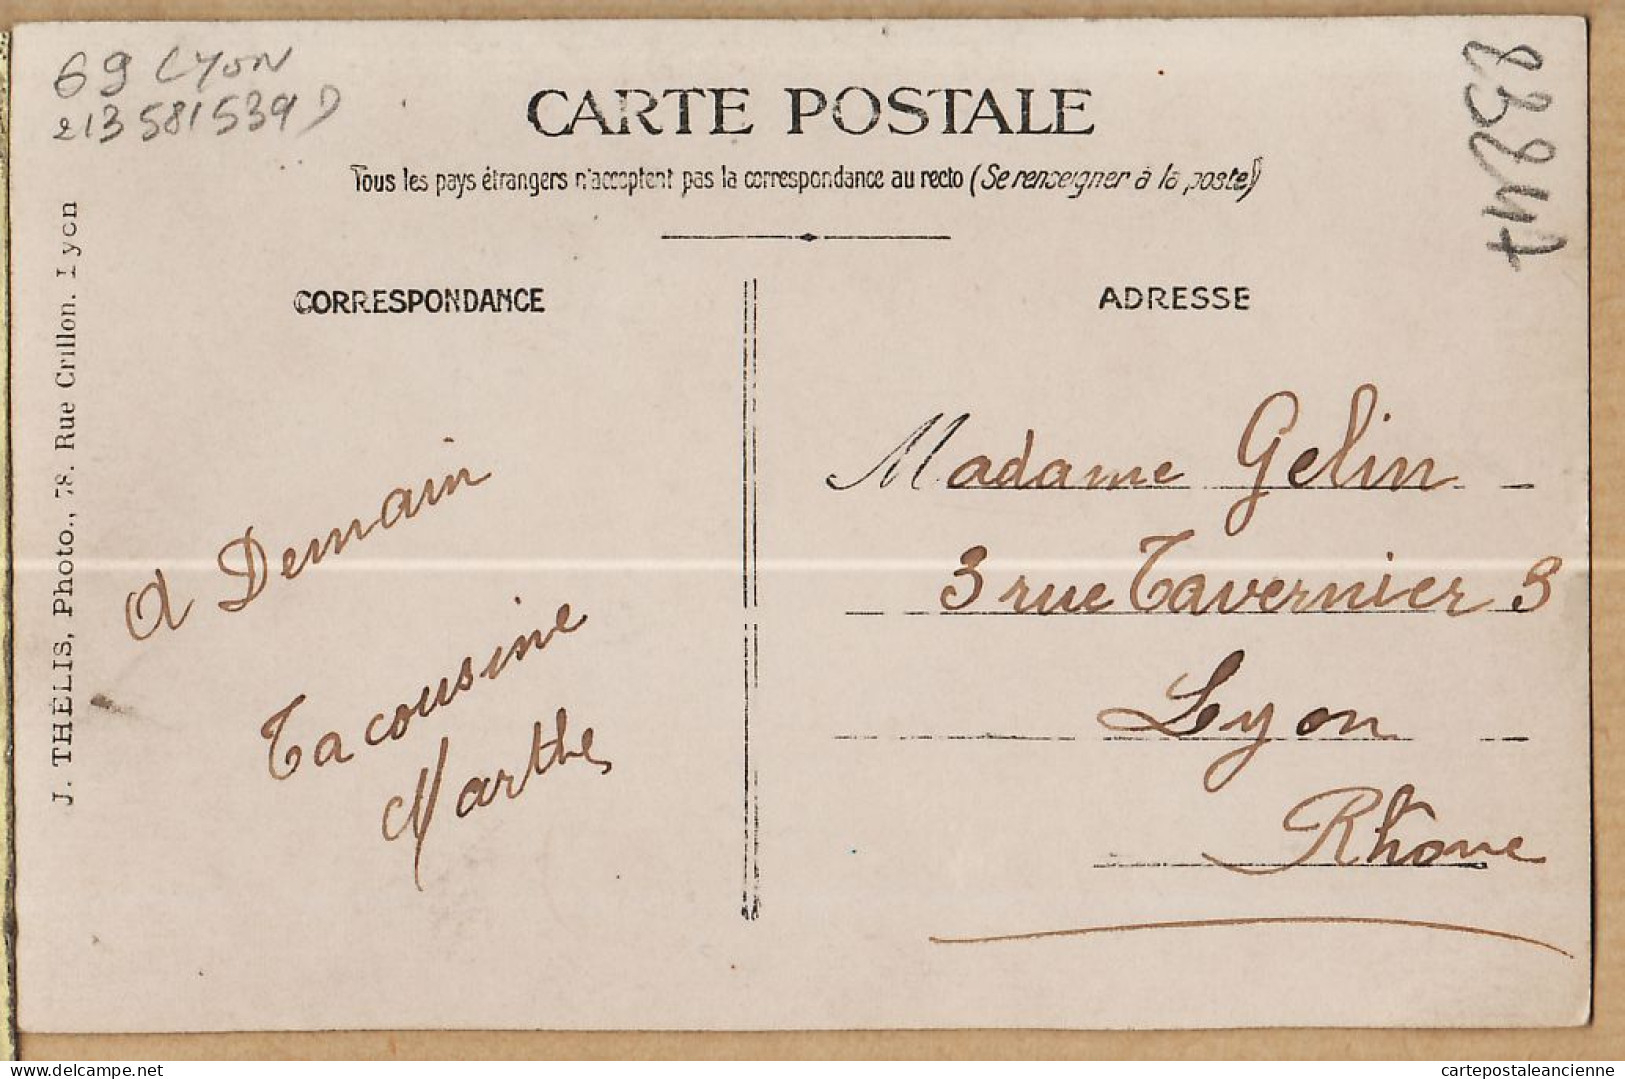 69 LYON
213581539D
CARTE POSTALE
Tous les pays étrangers n'acceptent pas la correspondance au recto (Se renseigner à la poste)
CORRESPONDANCE
A Demain
Ta cousine
Marthe
ADRESSE
Madame Gelin
3 rue Tavernier 3
Lyon
Rhône
J. THÉLIS, Photo., 78. Rue Crillon. Lyon
delcampe.net
cartepostaleancienne